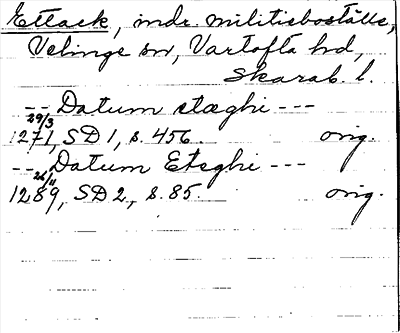 Ettack, mdr. militieboställe,
Velinge sn, Vartofta hd,
Skarab. l.
-- Datum etæghi ---
29/3
1271, SD 1, s. 456. orig.
-- Datum Eteghi ---
26/11
1289, SD 2, s. 85. orig.